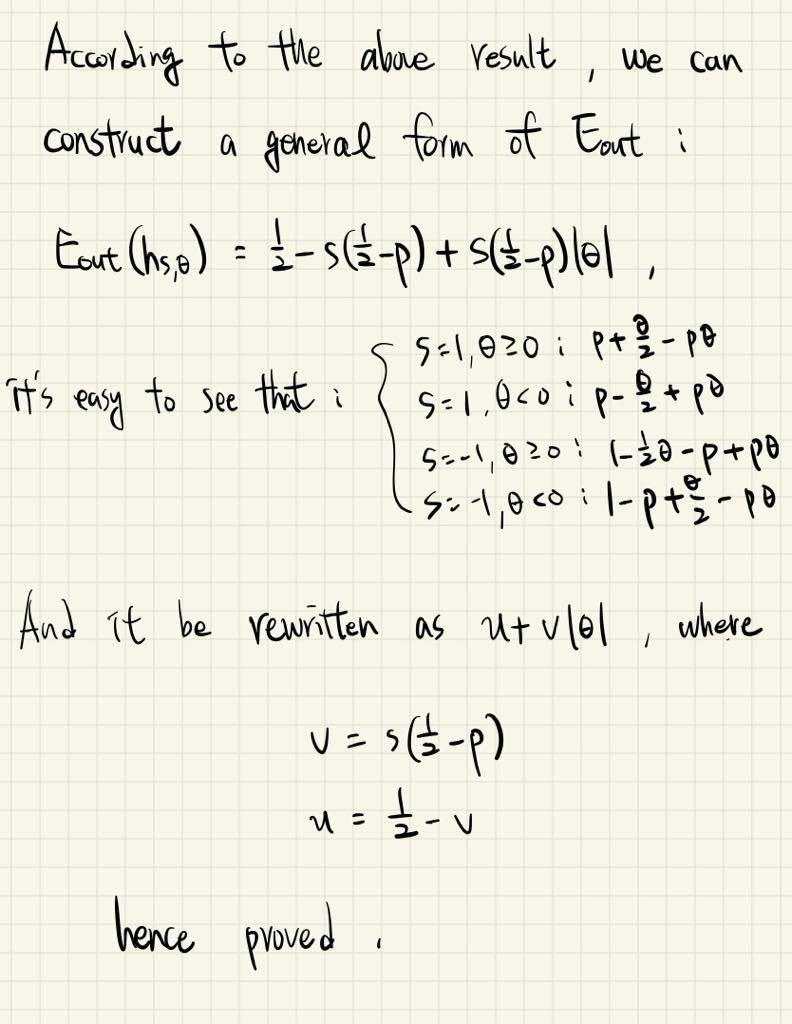 According to the above result , we can
construct a general form of Eout :
Eout(hs,θ) = 1/2 - s(1/2-p) + s(1/2-p)|θ| ,
it's easy to see that : { s=1, θ≥0 : p+θ/2 - pθ
s=1, θ<0 : p-θ/2 + pθ
s=-1, θ≥0 : 1-1/2θ-p+pθ
s=-1, θ<0 : 1-p+θ/2 - pθ
And it be rewritten as u+v|θ| , where
v = s(1/2-p)
u = 1/2 - v
hence proved .